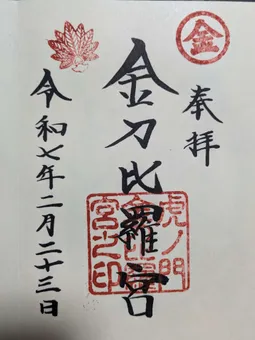 金
奉拝
金刀比羅宮
虎ノ門
金刀比羅
宮之印
令和七年二月二十三日